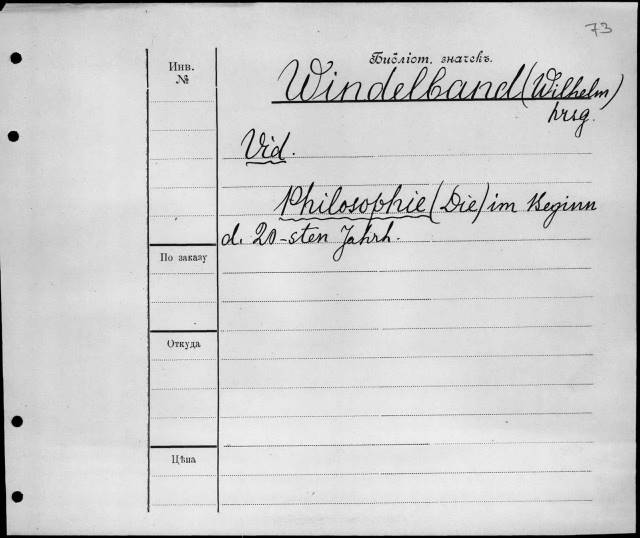 73
Библіот. значекъ.
Инв.
№
Windelband (Wilhelm)
hrsg.
Vid.
Philosophie (Die) im Beginn
d. 20-sten Jahrh.
По заказу
Откуда
Цѣна